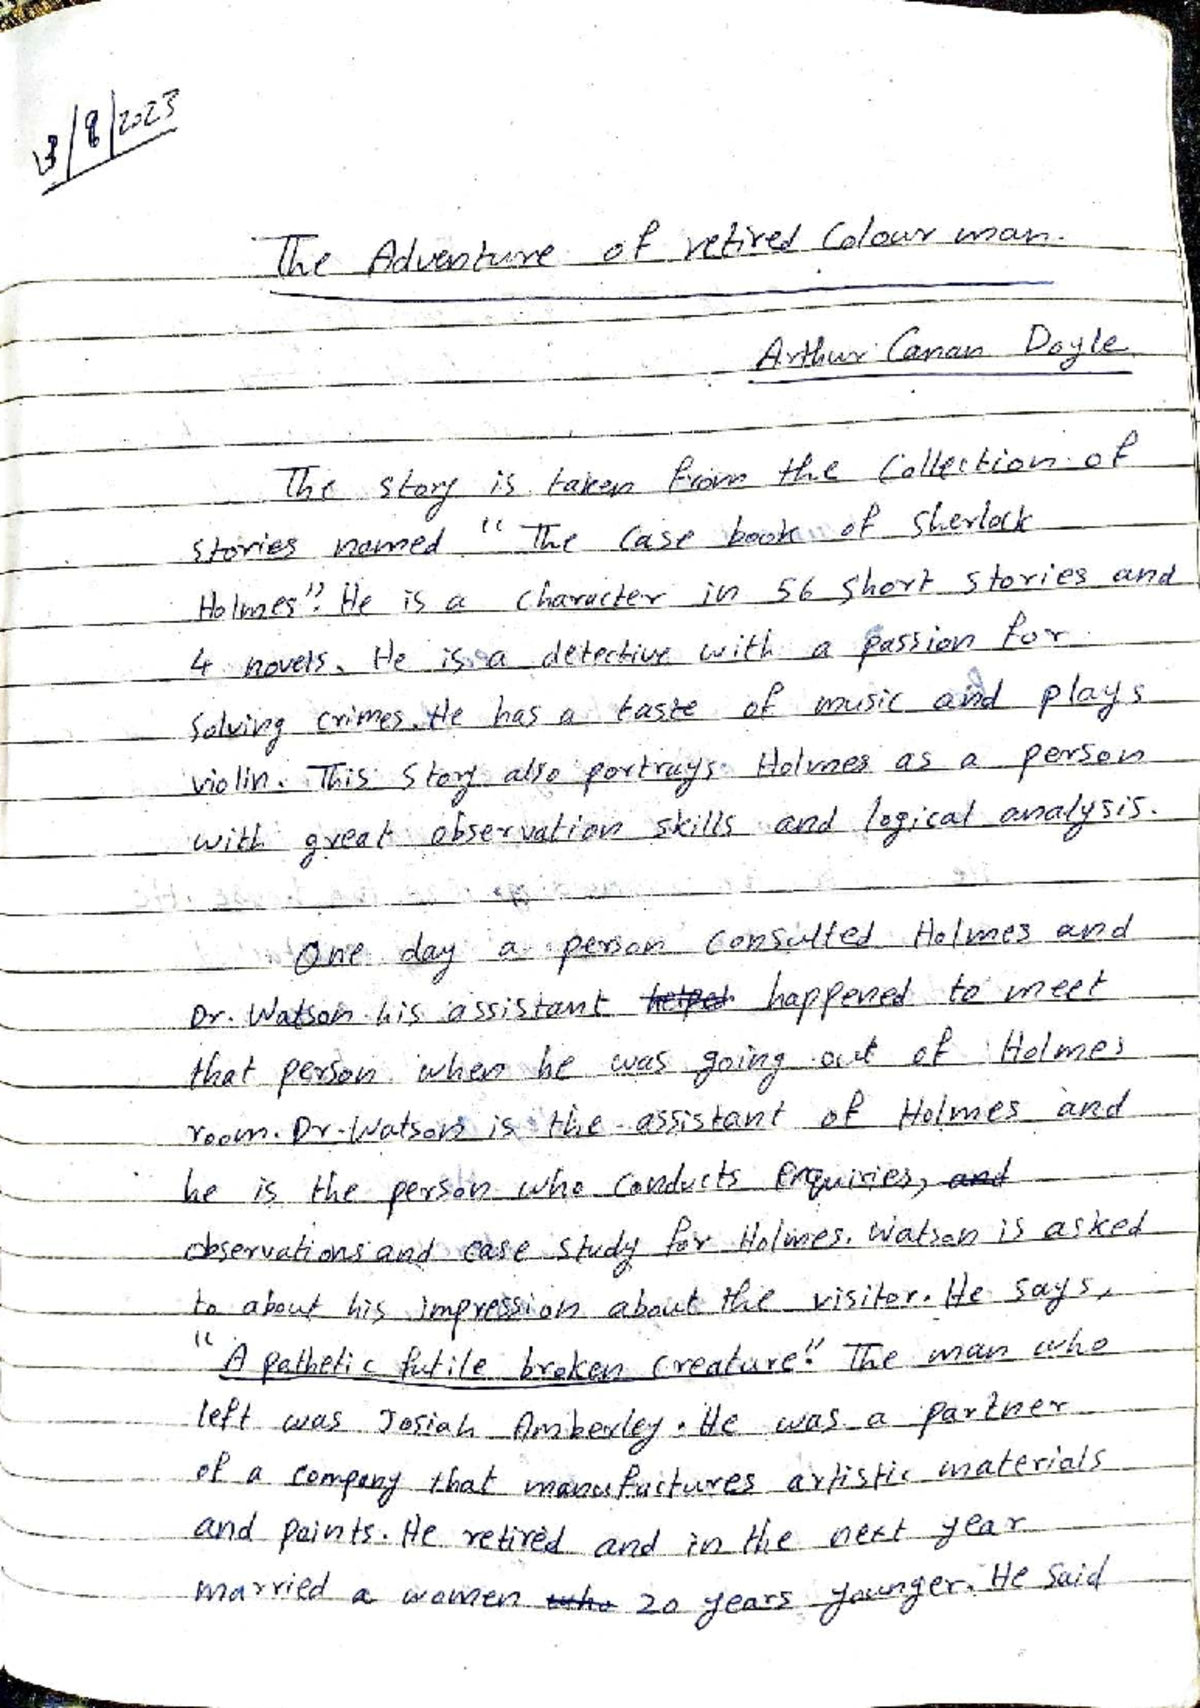 13/8/2023
The Adventure of retired Colour man.
Arthur Canan Doyle
The story is taken from the Collection of
stories named "The Case book of Sherlock
Holmes". He is a character in 56 short stories and
4 novels. He is a detective with a passion for
solving crimes. He has a taste of music and plays
violin. This Story also portrays Holmes as a person
with great observation skills and logical analysis.
One day a person consulted Holmes and
Dr. Watson his assistant helped happened to meet
that person when he was going out of Holmes
room. Dr. Watson is the assistant of Holmes and
he is the person who conducts enquiries, and
observations and case study for Holmes. Watson is asked
to about his impression about the visitor. He says,
"A pathetic futile broken creature". The man who
left was Josiah Amberley. He was a partner
of a company that manufactures artistic materials
and paints. He retired and in the next year
married a women who 20 years younger. He said